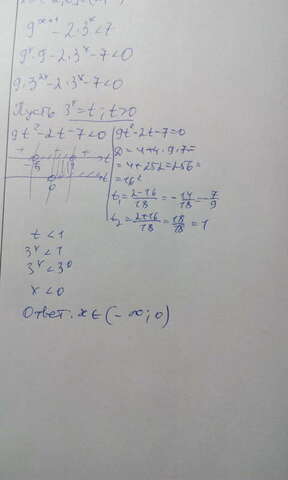 9^{x+1} - 2·3^x < 7
9^x·9 - 2·3^x - 7 < 0
9·3^{2x} - 2·3^x - 7 < 0
Пусть 3^x = t; t > 0
9t² - 2t - 7 < 0
9t² - 2t - 7 = 0
D = 4 + 4·9·7 =
= 4 + 252 = 256 =
= 16²
t₁ = (2-16)/18 = -14/18 = -7/9
t₂ = (2+16)/18 = 18/18 = 1
+ - + t
0 t
t < 1
3^x < 1
3^x < 3^0
x < 0
Ответ: x ∈ (-∞; 0)